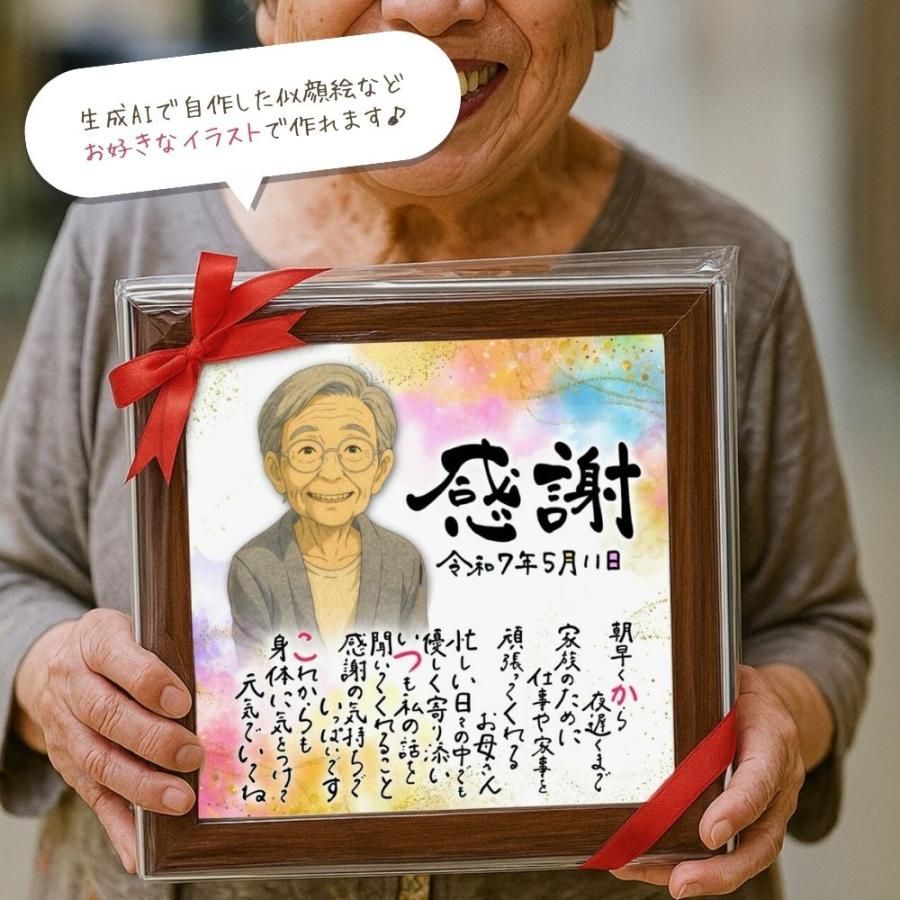 生成AIで自作した似顔絵など
お好きなイラストで作れます♪
感謝
令和7年5月11日
朝早くから
夜遅くまで
家族のために
仕事や家事を
頑張ってくれる
お母さん
忙しい日々の中でも
優しく寄り添い
いつも私の話を
聞いてくれること
感謝の気持ちで
いっぱいです
これからも
身体に気をつけて
元気でいてね